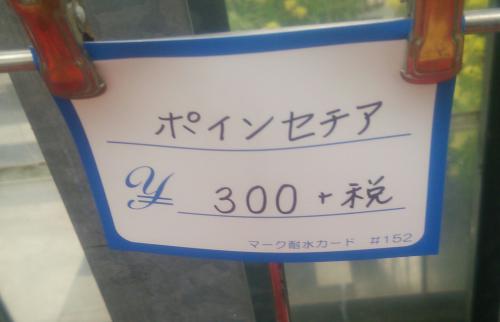 ポインセチア
¥ 300+税
マーク耐水カード #152